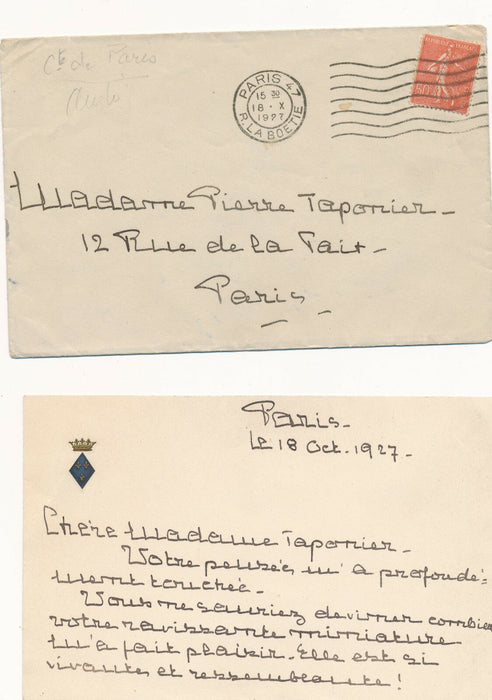 Cte de Paris
PARIS 47
15 30
18 - X
1927
R. LA BOETIE
50
Madame Pierre Taponier -
12 Rue de la Paix -
Paris
Paris -
Le 18 Oct. 1927 -
Chère Madame Taponier -
Votre pensée m'a profondé-
ment touchée -
Vous ne sauriez deviner combien
votre ravissante miniature
m'a fait plaisir. Elle est si
vivante et ressemblante !